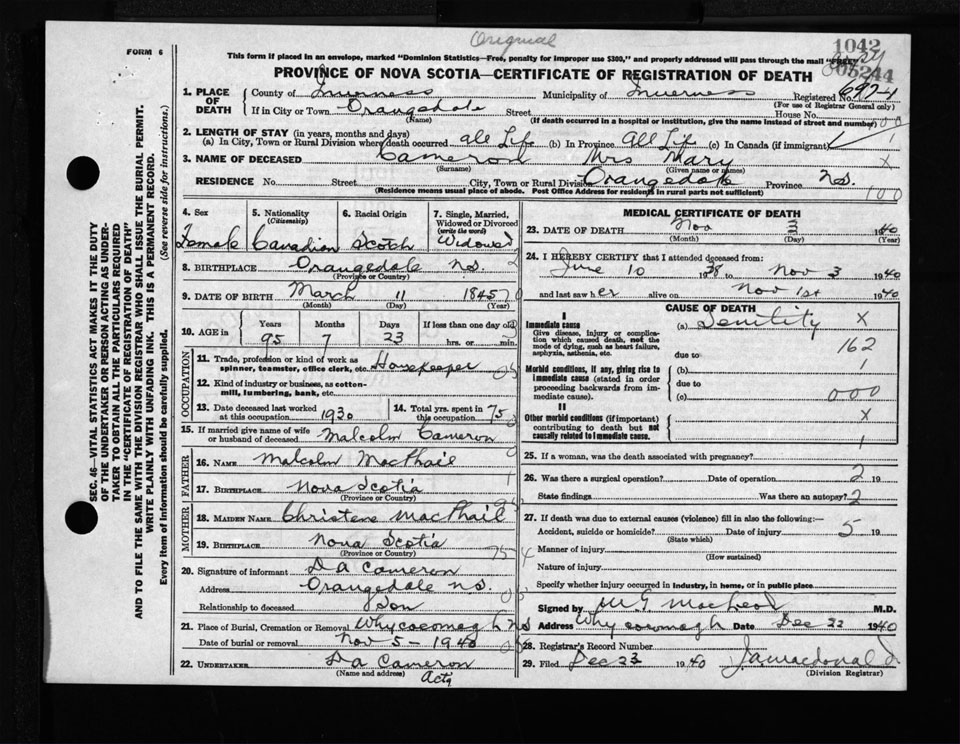 Original
FORM 6
1042
This form if placed in an envelope, marked "Dominion Statistics—Free, penalty for improper use $300," and properly addressed will pass through the mail "FREE"
005244
PROVINCE OF NOVA SCOTIA—CERTIFICATE OF REGISTRATION OF DEATH
1. PLACE OF DEATH County of Inverness Municipality of Inverness Registered No. 6924
(For use of Registrar General only)
If in City or Town Orangedale Street House No.
(Name) (If death occurred in a hospital or institution, give the name instead of street and number)
2. LENGTH OF STAY (in years, months and days)
(a) In City, Town or Rural Division where death occurred all Life (b) In Province All Life (c) In Canada (if immigrant)
3. NAME OF DECEASED Cameron Mrs Mary
(Surname) (Given name or names)
RESIDENCE No. Street City, Town or Rural Division Orangedale Province N.S.
(Residence means usual place of abode. Post Office Address for residents in rural parts not sufficient)
100
4. Sex 5. Nationality (Citizenship) 6. Racial Origin 7. Single, Married, Widowed or Divorced (write the word)
Female Canadian Scotch Widowed
8. BIRTHPLACE Orangedale N.S.
(Province or Country)
9. DATE OF BIRTH March 11 1845
(Month) (Day) (Year)
10. AGE in Years Months Days If less than one day old
95 7 23 hrs. or min.
OCCUPATION
11. Trade, profession or kind of work as spinner, teamster, office clerk, etc. Housekeeper
12. Kind of industry or business, as cotton-mill, lumbering, bank, etc.
13. Date deceased last worked at this occupation 1930 14. Total yrs. spent in this occupation 75
15. If married give name of wife or husband of deceased Malcolm Cameron
FATHER
16. NAME Malcolm MacPhail
17. BIRTHPLACE Nova Scotia
(Province or Country)
MOTHER
18. MAIDEN NAME Christene MacPhail
19. BIRTHPLACE Nova Scotia
(Province or Country)
20. Signature of informant D A Cameron
Address Orangedale N.S.
Relationship to deceased Son
21. Place of Burial, Cremation or Removal Whycocomagh N.S
Date of burial or removal Nov 5 - 1940
22. UNDERTAKER D A Cameron
(Name and address) Actg
MEDICAL CERTIFICATE OF DEATH
23. DATE OF DEATH Nov 3 1940
(Month) (Day) (Year)
24. I HEREBY CERTIFY that I attended deceased from:
June 10 1938 to Nov 3 1940
and last saw her alive on Nov 1st 1940
CAUSE OF DEATH
I
Immediate cause (a) Senility X
Give disease, injury or complication which caused death, not the mode of dying, such as heart failure, asphyxia, asthenia, etc.
162
due to
Morbid conditions, if any, giving rise to immediate cause (stated in order proceeding backwards from immediate cause).
(b) 1
due to
(c) 000
II
Other morbid conditions (if important) contributing to death but not causally related to immediate cause.
X
1
25. If a woman, was the death associated with pregnancy?
26. Was there a surgical operation? Date of operation 2 19
State findings Was there an autopsy? 2
27. If death was due to external causes (violence) fill in also the following:—
Accident, suicide or homicide? Date of injury 5 19
(State which)
Manner of injury
(How sustained)
Nature of injury
Specify whether injury occurred in industry, in home, or in public place
Signed by M G MacLeod M.D.
Address Whycocomagh Date Dec 22 1940
28. Registrar's Record Number
29. Filed Dec 23 1940 J a macdonald
(Division Registrar)
SEC. 46—VITAL STATISTICS ACT MAKES IT THE DUTY
OF THE UNDERTAKER OR PERSON ACTING AS UNDERTAKER TO OBTAIN ALL THE PARTICULARS REQUIRED
IN THE "CERTIFICATE OF REGISTRATION OF DEATH"
AND TO FILE THE SAME WITH THE DIVISION REGISTRAR WHO SHALL ISSUE THE BURIAL PERMIT.
WRITE PLAINLY WITH UNFADING INK. THIS IS A PERMANENT RECORD.
Every item of Information should be carefully supplied. (See reverse side for instructions.)